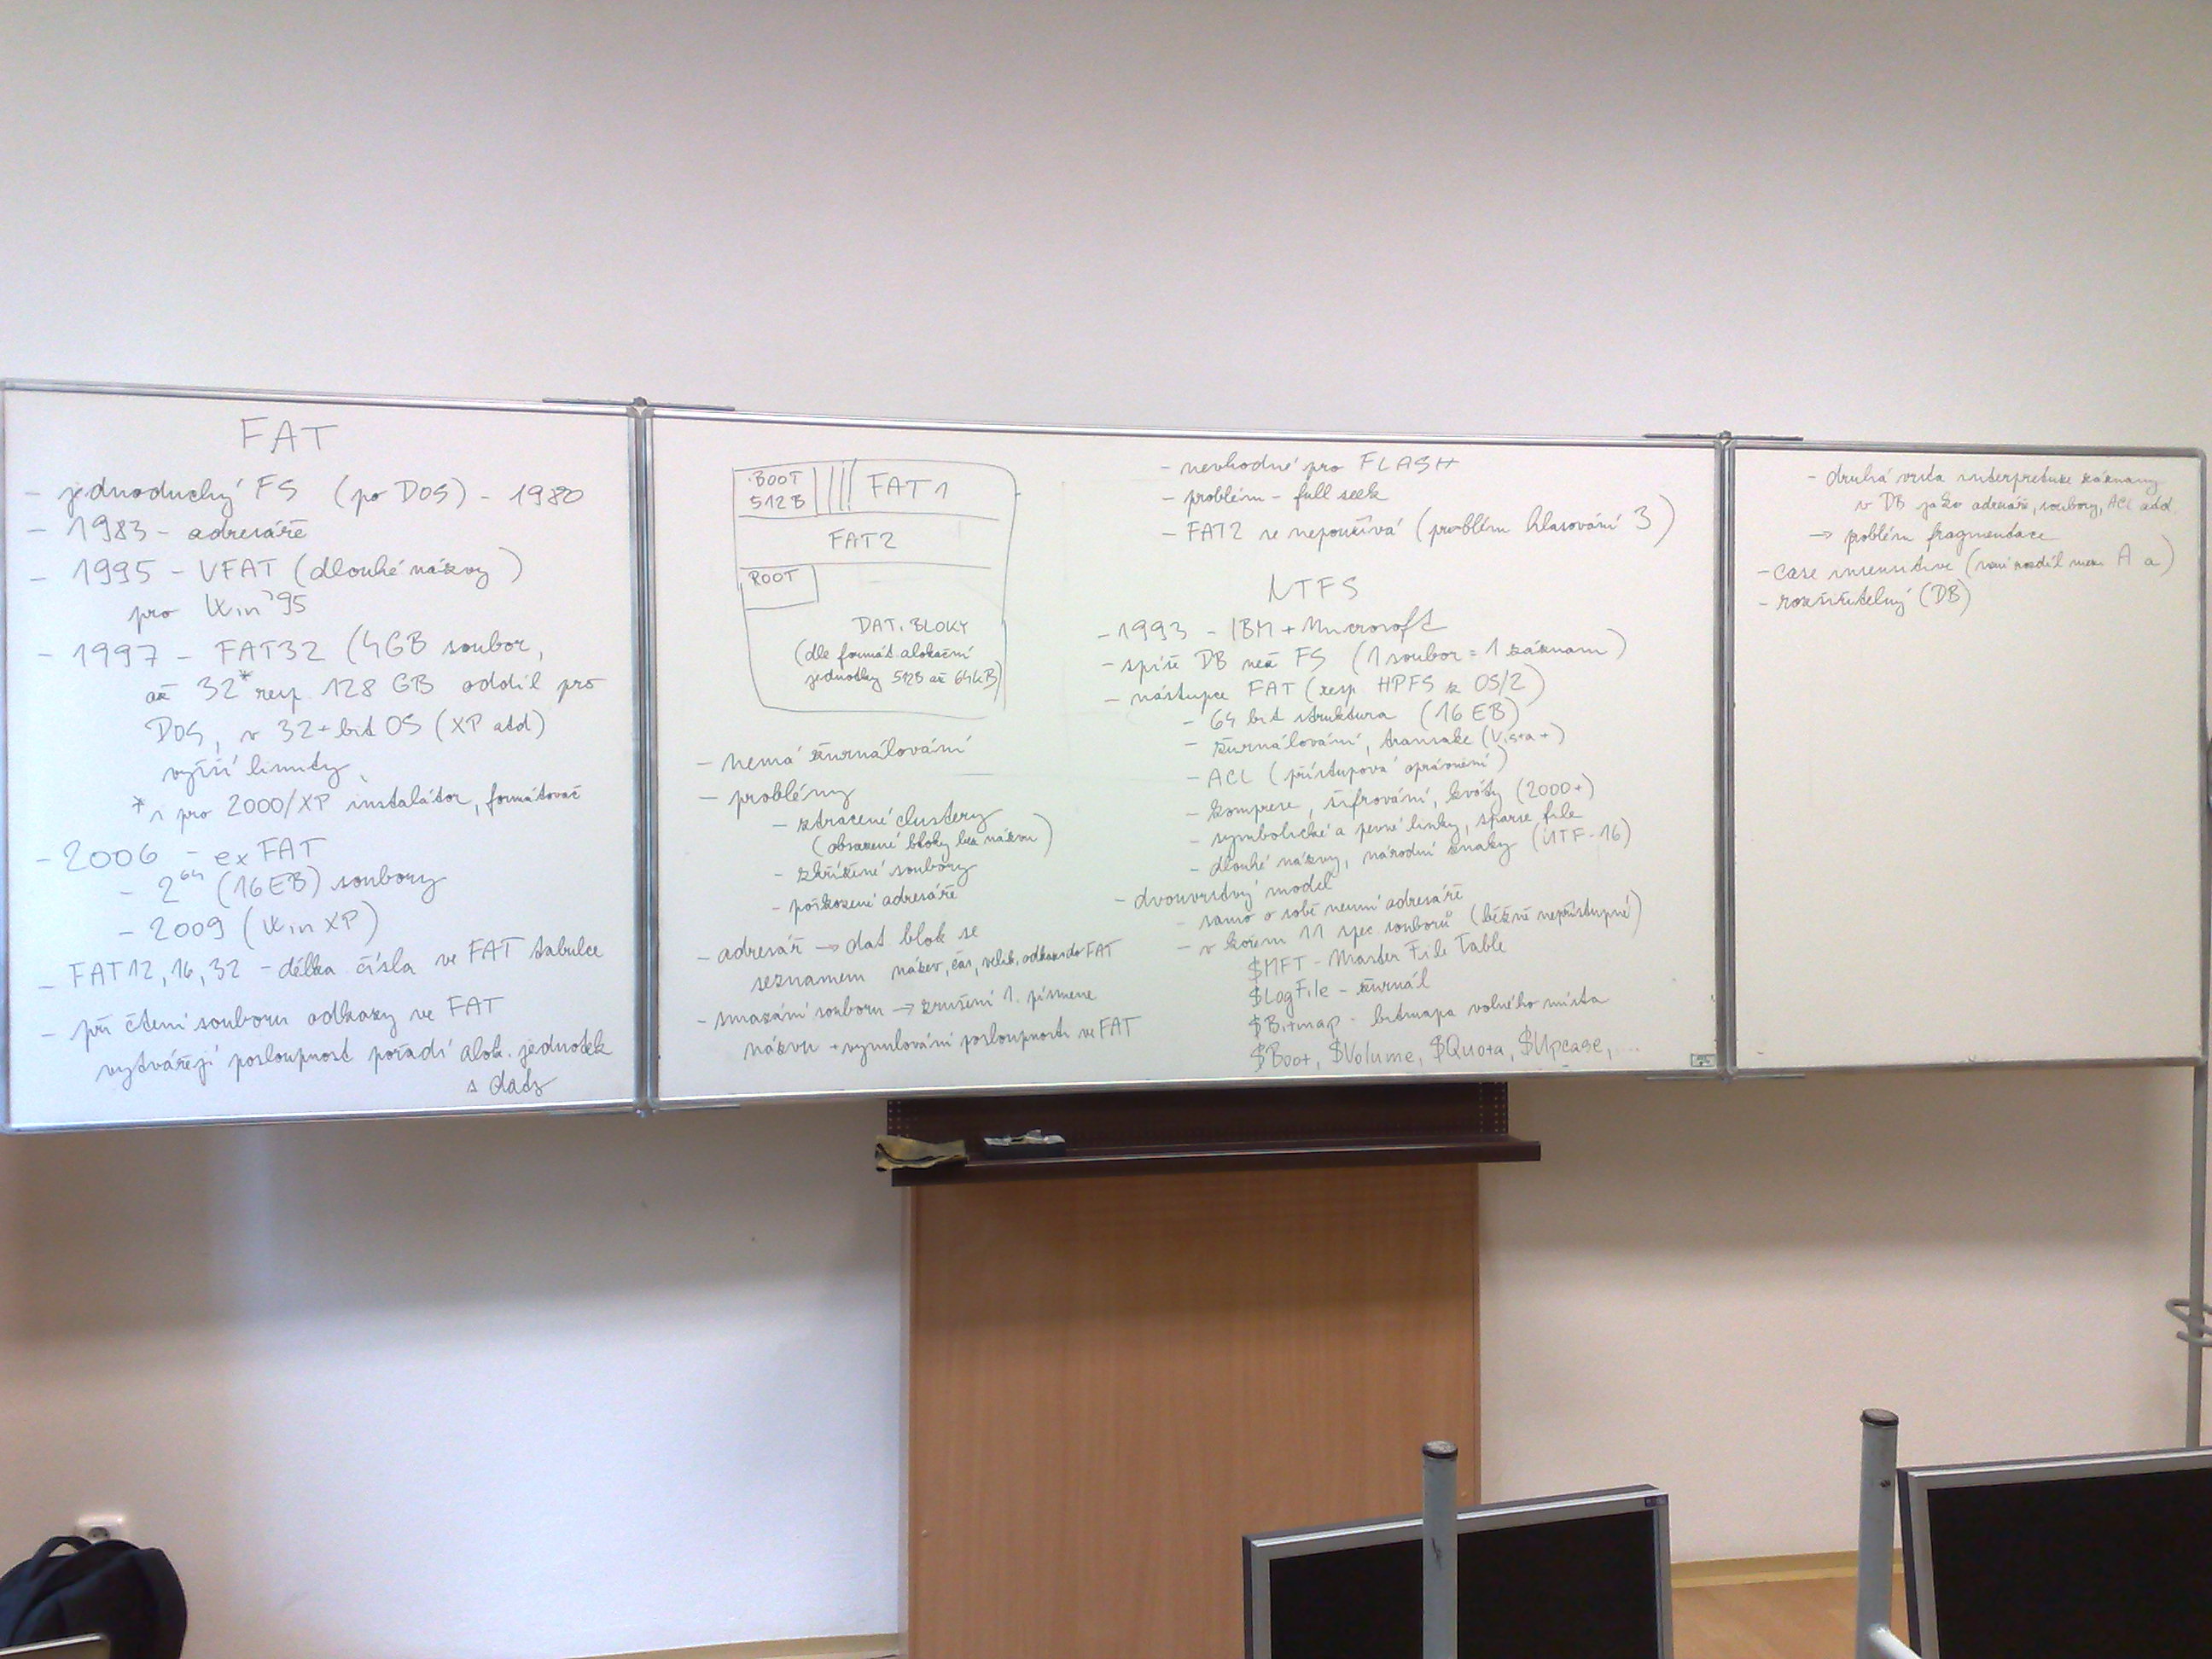 FAT
- jednoduchý FS (po DOS) - 1980
- 1983 - adresáře
- 1995 - VFAT (dlouhé názvy)
pro Win '95
- 1997 - FAT32 (4GB soubor,
až 32* resp. 128 GB oddíl pro
DOS, v 32+bit OS (XP atd)
vyšší limity
* pro 2000/XP instalátor, formátovač
- 2006 - exFAT
- 2^64 (16EB) soubory
- 2009 (Win XP)
- FAT12, 16, 32 - délka čísla ve FAT tabulce
- při čtení souboru odkazy ve FAT
vytvářejí posloupnost pořadí alok. jednotek
s daty
BOOT
512B
FAT1
FAT2
ROOT
DAT. BLOKY
(dle formát. alokační
jednotky 512B až 64kB)
- nemá žurnálování
- problémy
- ztracené clustery
(obsazené bloky bez názvu)
- zkřížené soubory
- poškozené adresáře
- adresář → dat blok se
seznamem název, čas, velik, odkaz do FAT
- smazání souboru → zrušení 1. písmene
názvu + vynulování posloupnosti ve FAT
- nevhodné pro FLASH
- problém - full seek
- FAT2 se nepoužívá (problém hlasování 3)
NTFS
- 1993 - IBM + Microsoft
- spíše DB než FS (1 soubor = 1 záznam)
- nástupce FAT (resp HPFS z OS/2)
- 64 bit struktura (16 EB)
- žurnálování, transakce (Vista+)
- ACL (přístupová oprávnění)
- komprese, šifrování, kvóty (2000+)
- symbolické a pevné linky, sparse file
- dlouhé názvy, národní znaky (UTF-16)
- dvouvrstvý model
- samo o sobě neumí adresáře
- v kořeni 11 spec. souborů (běžně nepřístupné)
$MFT - Master File Table
$LogFile - žurnál
$Bitmap - bitmapa volného místa
$Boot, $Volume, $Quota, $Upcase, ...
- druhá vrstva interpretuje záznamy
v DB jako adresáře, soubory, ACL atd.
→ problém fragmentace
- case insensitive (není rozdíl mezi A a)
- rozšiřitelný (DB)